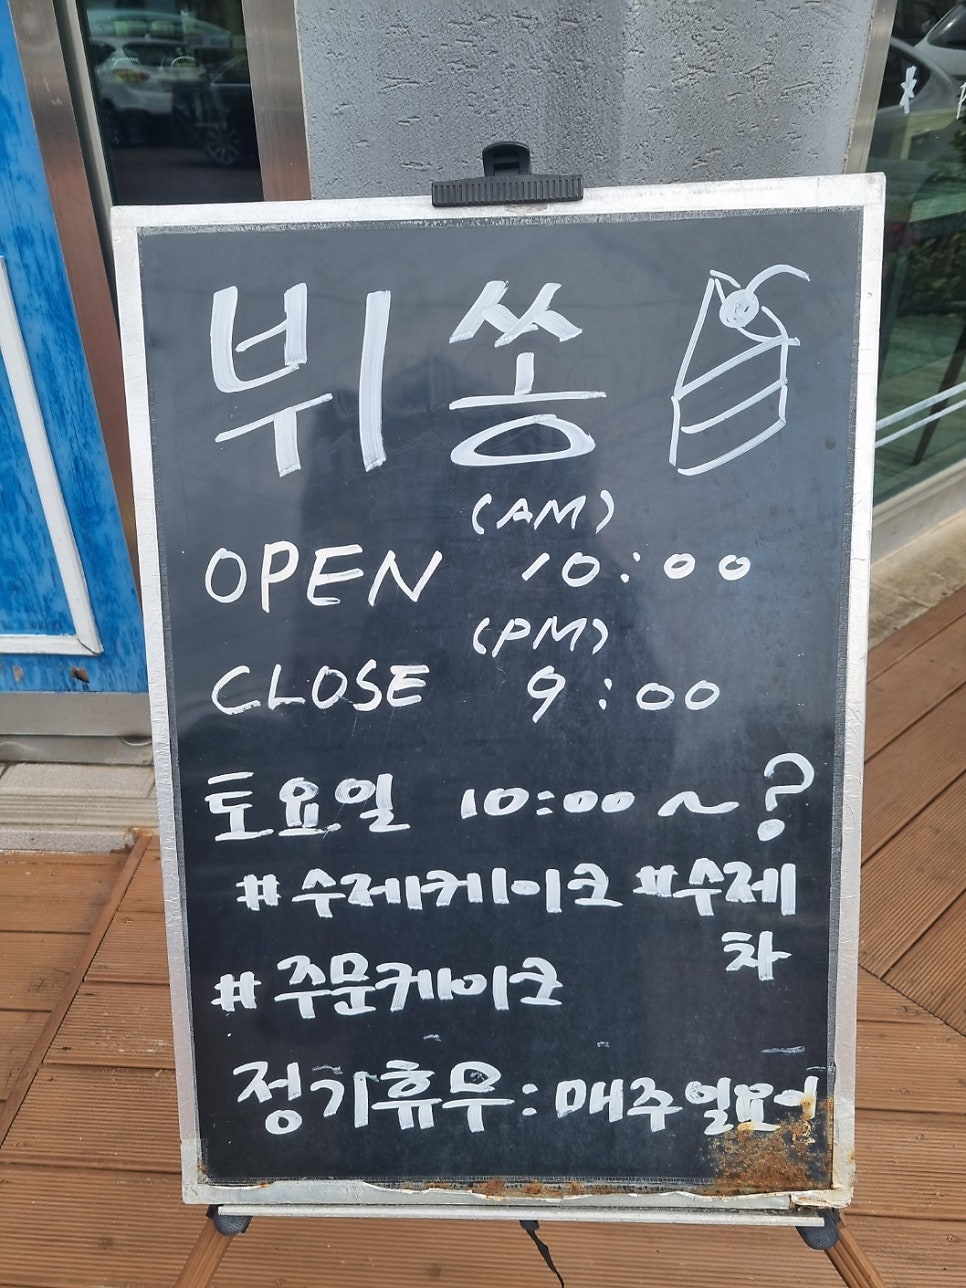 뷔쏭
(AM)
OPEN 10:00
(PM)
CLOSE 9:00
토요일 10:00~?
#수제케이크 #수제
차
#주문케이크
정기휴무: 매주일요일